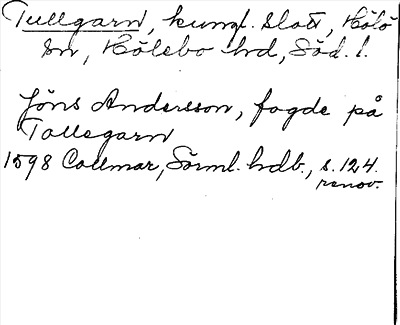 Tullgarn, kungl. slott, Hölö
sn, Hölebo hd, Söd. l.
Jöns Andersson, fogde på
Tollegarn
1598 Collmar, Sörml. hdb., s. 124.
renov.